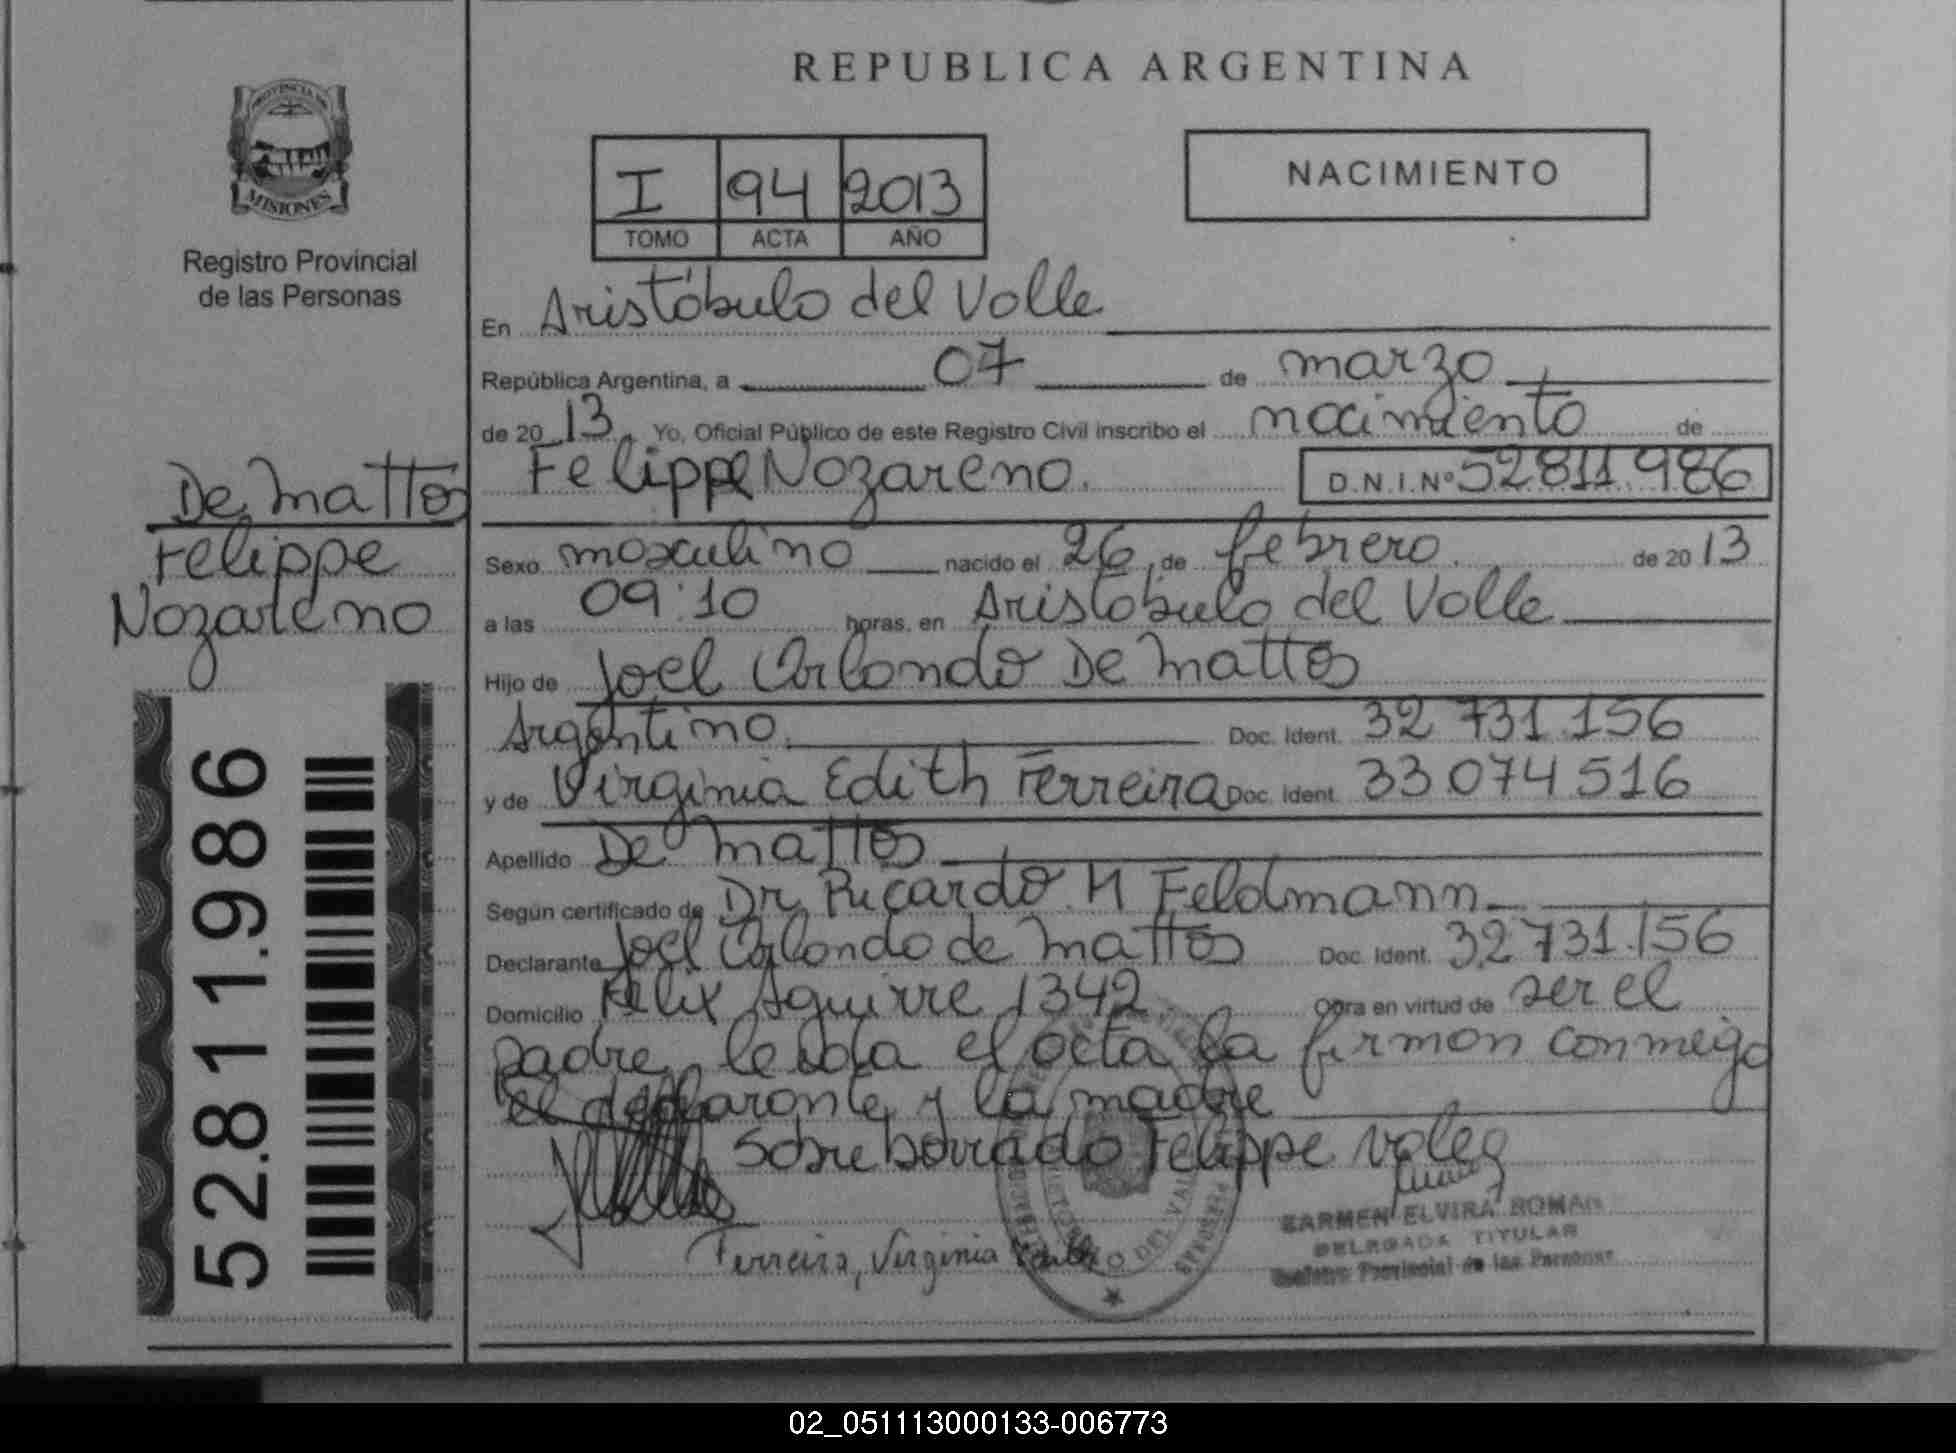 REPUBLICA ARGENTINA
PROVINCIA DE
MISIONES
Registro Provincial
de las Personas
I 94 2013
TOMO ACTA AÑO
NACIMIENTO
En Aristóbulo del Valle
República Argentina, a 07 de marzo
de 20 13. Yo, Oficial Público de este Registro Civil inscribo el nacimiento de
Felippe Nazareno. D.N.I.Nº 52811986
De Mattos
Felippe
Nazareno
Sexo masculino nacido el 26 de febrero. de 20 13
a las 09:10 horas, en Aristóbulo del Valle
Hijo de Joel Orlando De Mattos
Argentino. Doc. Ident. 32 731.156
y de Virginia Edith Ferreira Doc. Ident. 33 074 516
Apellido De Mattos
Según certificado de Dr. Ricardo H Feldmann
Declarante Joel Orlando de Mattos Doc. Ident. 32 731.156
Domicilio Felix Aguirre 1342 Obra en virtud de ser el
padre, leida el acta la firman conmigo
el declarante y la madre
Sobreborrado Felippe Vale
Ferreira, Virginia
CARMEN ELVIRA ROMAN
DELEGADA TITULAR
Registro Provincial de las Personas
52.811.986
02_051113000133-006773